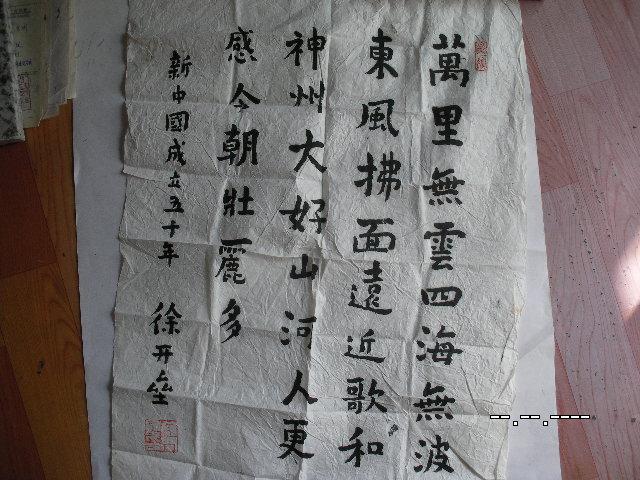 萬里無雲四海無波
東風拂面遠近歌和
神州大好山河人更
感今朝壯麗多
新中國成立五十年
徐开垒
--.--.----